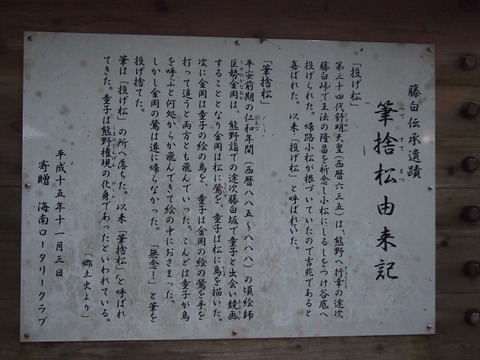 藤白伝承遺蹟
筆捨松由来記
ふですてまつ
「投げ松」
第三十四代舒明天皇（西暦六三五）は、熊野へ行幸の途次
藤白峠で王法の隆昌を祈念し小松にしるしをつけ谷底へ
投げられた。帰路小松が根づいていたので吉兆であると
喜ばれた。以来「投げ松」と呼ばれていた。
「筆捨松」
平安前期の仁和年間（西暦八八五～八八八）の頃絵師
巨勢金岡は、熊野詣での途次藤白坂で童子と出会い競画
することとなり金岡は松に鶯を、童子は松に烏を描いた。
次に金岡は童子の絵の烏を、童子は金岡の絵の鶯を手を
打って追うと両方とも飛んでいった。こんどは童子が烏
を呼ぶと何処からか飛んできて絵の中におさまった。
しかし金岡の鶯は遂に帰らなかった。「無念！」と筆を
投げ捨てた。
筆は「投げ松」の所へ落ちた。以来「筆捨松」と呼ばれ
てきた。童子は熊野権現の化身であったといわれている。
「郷土史より」
平成十五年十一月三日
寄贈 海南ロータリークラブ